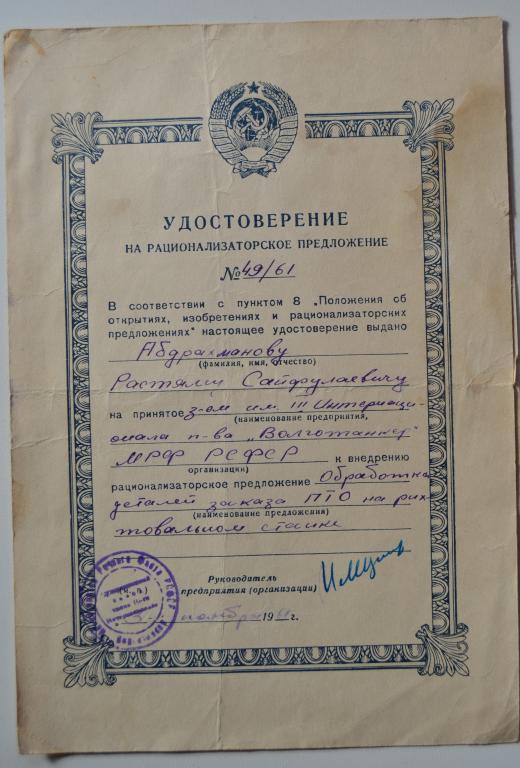 УДОСТОВЕРЕНИЕ
НА РАЦИОНАЛИЗАТОРСКОЕ ПРЕДЛОЖЕНИЕ
№ 49/61
В соответствии с пунктом 8 „Положения об
открытиях, изобретениях и рационализаторских
предложениях" настоящее удостоверение выдано
Абдрахманову
(фамилия, имя, отчество)
Сайфулаевичу
на принятое з-ом им. III Интернаци-
(наименование предприятия,
онала п-ва „Волготанкер"
МРФ РСФСР к внедрению
организации)
рационализаторское предложение Обработка
деталей заказа ПТО на рих-
(наименование предложения)
товальном станке
Руководитель
предприятия (организации)
ноября 1961 г.